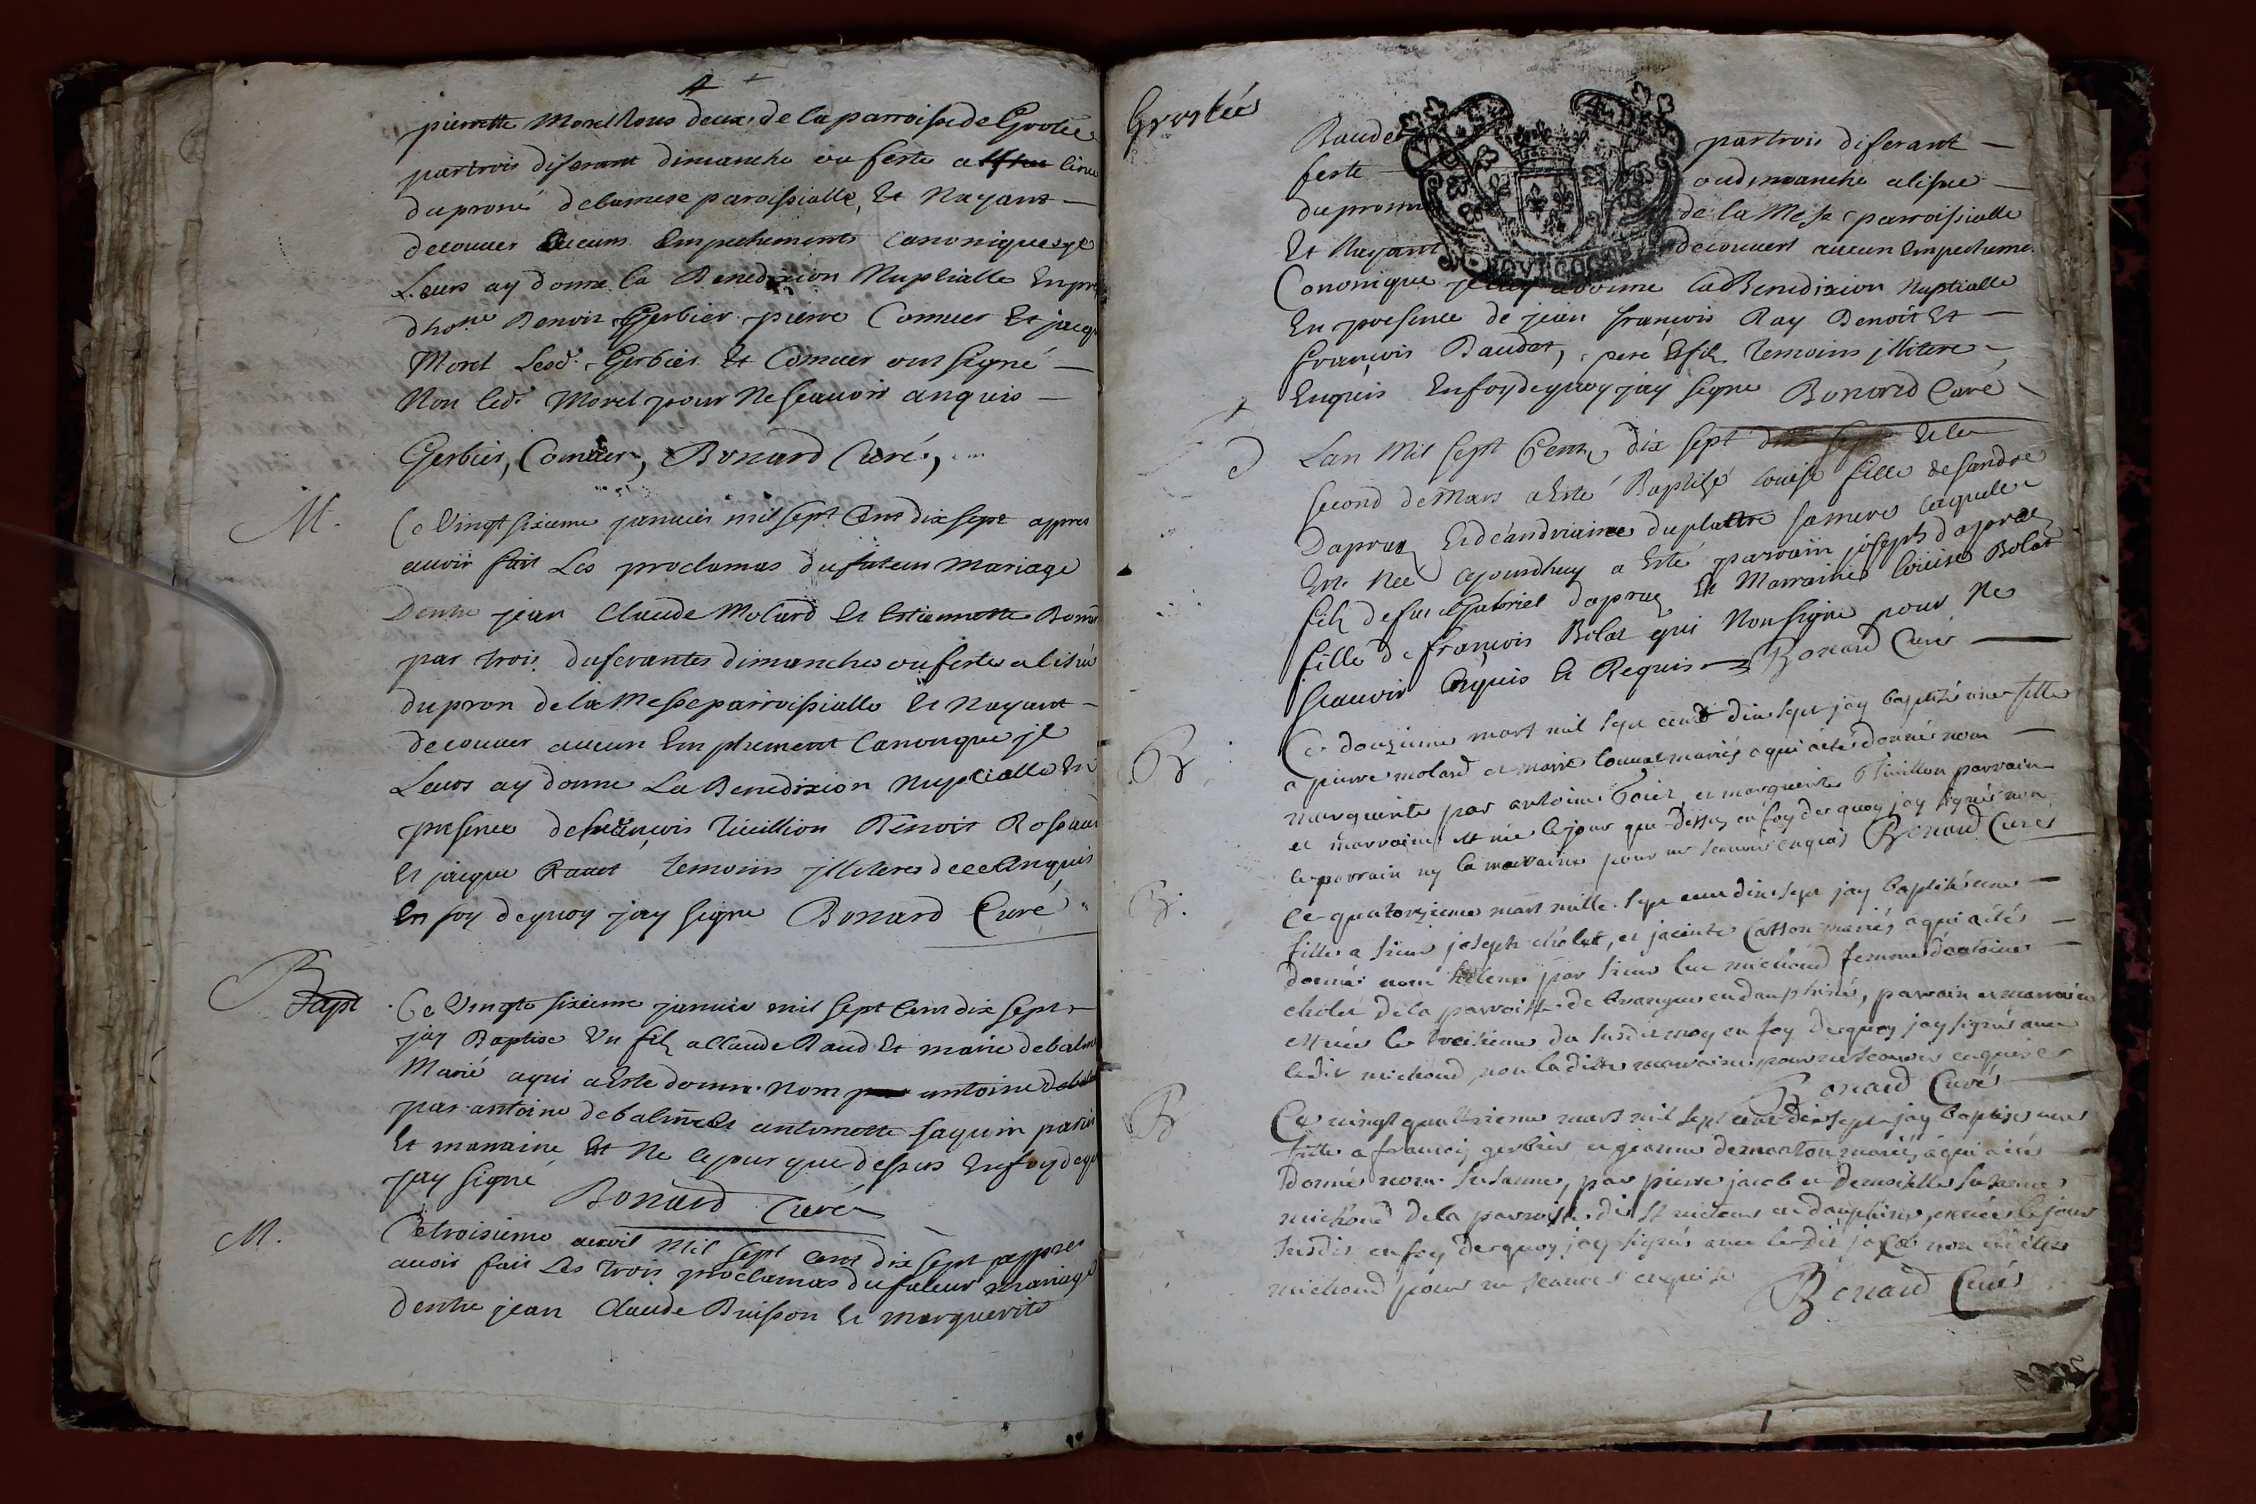 pierrette Morel tous deux de la parroisse de Grolée
par trois diferant dimanche ou feste a lisue
du proné de la mese paroissialle, Et Nayant
decouuer aucuns Empechements Canoniques je
Leurs ay donné la Benedixion Nuptialle En pre
dhonne Benoit Gerbier pierre Comuer Et jacq
Morel Lesd. Gerbier Et Comuer ont signé
Non led. Morel pour Ne scauoir anquis
Gerbier, Comuer, Bonard Curé,
M.
Ce Vingt sixieme januier mil sept Cent dix sept appres
auoir fait Les proclamas du futeur Mariage
Dentre jean Claude Molard Et Estiennette Bonn
par trois diferantes dimanche ou feste a lisué
du pron de la Messe parroissialle Et Nayant
decouuer aucun Empechement Canonque je
Leurs ay donne La Benedixion Nuptialle En
presence de francois Tueillion Benoit Rossand
Et jacque Rauet temoins jlliteres Anquis
En foy dequoy jay signe Bonard Curé
Bapt
Ce Vingts sixieme januier mil sept Cent dix sept
jay Baptise Vn filz a Claude Raud Et marie debalm
Marié aqui a Esté donné Nom antoine
par antoine debalme Et antoinette saquin parin
Et marraine Et Né le jour que dessus En foy de q
jay signé Bonard Curé
M.
Ce troisieme auril Mil sept Cent dix sept appres
auoir fait Les trois proclamas du futeur mariage
dentre jean Claude Buisson Et marguerite
Groslée
Baudet par trois diferant
feste ou dimanche a lisue
du prosne de la Mese parroissialle
Et Nayant decouuert aucun Empecheme
Cononique je donne la Benedixion Nuptialle
En presence de jean françois Ray Benoit Et
françois Baudet, pere Et filz temoins jllitere
Enquis En foy dequoy jay signe Bonard Curé
Lan Mil sept Cent dix sept Et le
second de Mars a Esté Baptisé Louise fille de sandre
Dapraz Et deandriane duplattre sa mere laquele
Est Née cejourdhuy a Esté parrain joseph dapraz
filz de fut Gabriel dapraz Et Marraine Louise Bolat
fille de françois Bolat qui Non signe pour Ne
scauoir Enquis Et Requis Bonard Curé
B
Ce douzieme mars mil sept cent dix sept jay baptizé une fille
a pierre molard et marie mariés a qui a été donné nom
marguerite par antoine et marguerite parrain
et marraine, est née le jour que dessus en foy dequoy jay signé non
le parrain ny la marraine pour ne scauoir enquis Bonard Curé
B.
Ce quatorzieme mars mille sept cent dix sept jay baptisé une
fille a sieur joseph cholet, et jacinte Catton mariés, a qui a été
donné nomé helene par sieur luc michoud femme dantoine
cholet de la parroisse de brangue en dauphiné, parrain et marraine
est née le treisieme du susdit moy en foy dequoy jay signé auec
ledit michoud, non la dite marraine pour ne scauoir enquise
Bonard Curé
B
Ce vingt quatrieme mars mil sept cent dix sept jay baptise une
fille a francois gerbier et jeanne demarton mariés, a qui a été
donné nom susanne, par pierre jacob et Demoiselle susanne
michoud de la parroisse de st en dauphiné, est née le jour
susdit en foy dequoy jay signé auec ledit jacob non la dite
michoud pour ne scauoir enquise Bonard Curé